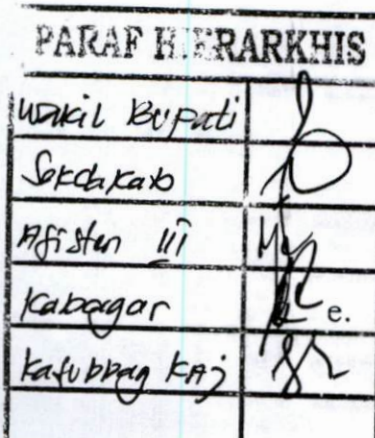 PARAF HIERARKHIS
Wakil Bupati
Sekdakab
Asisten III
Kabagar
e.
Kasubbag KAj